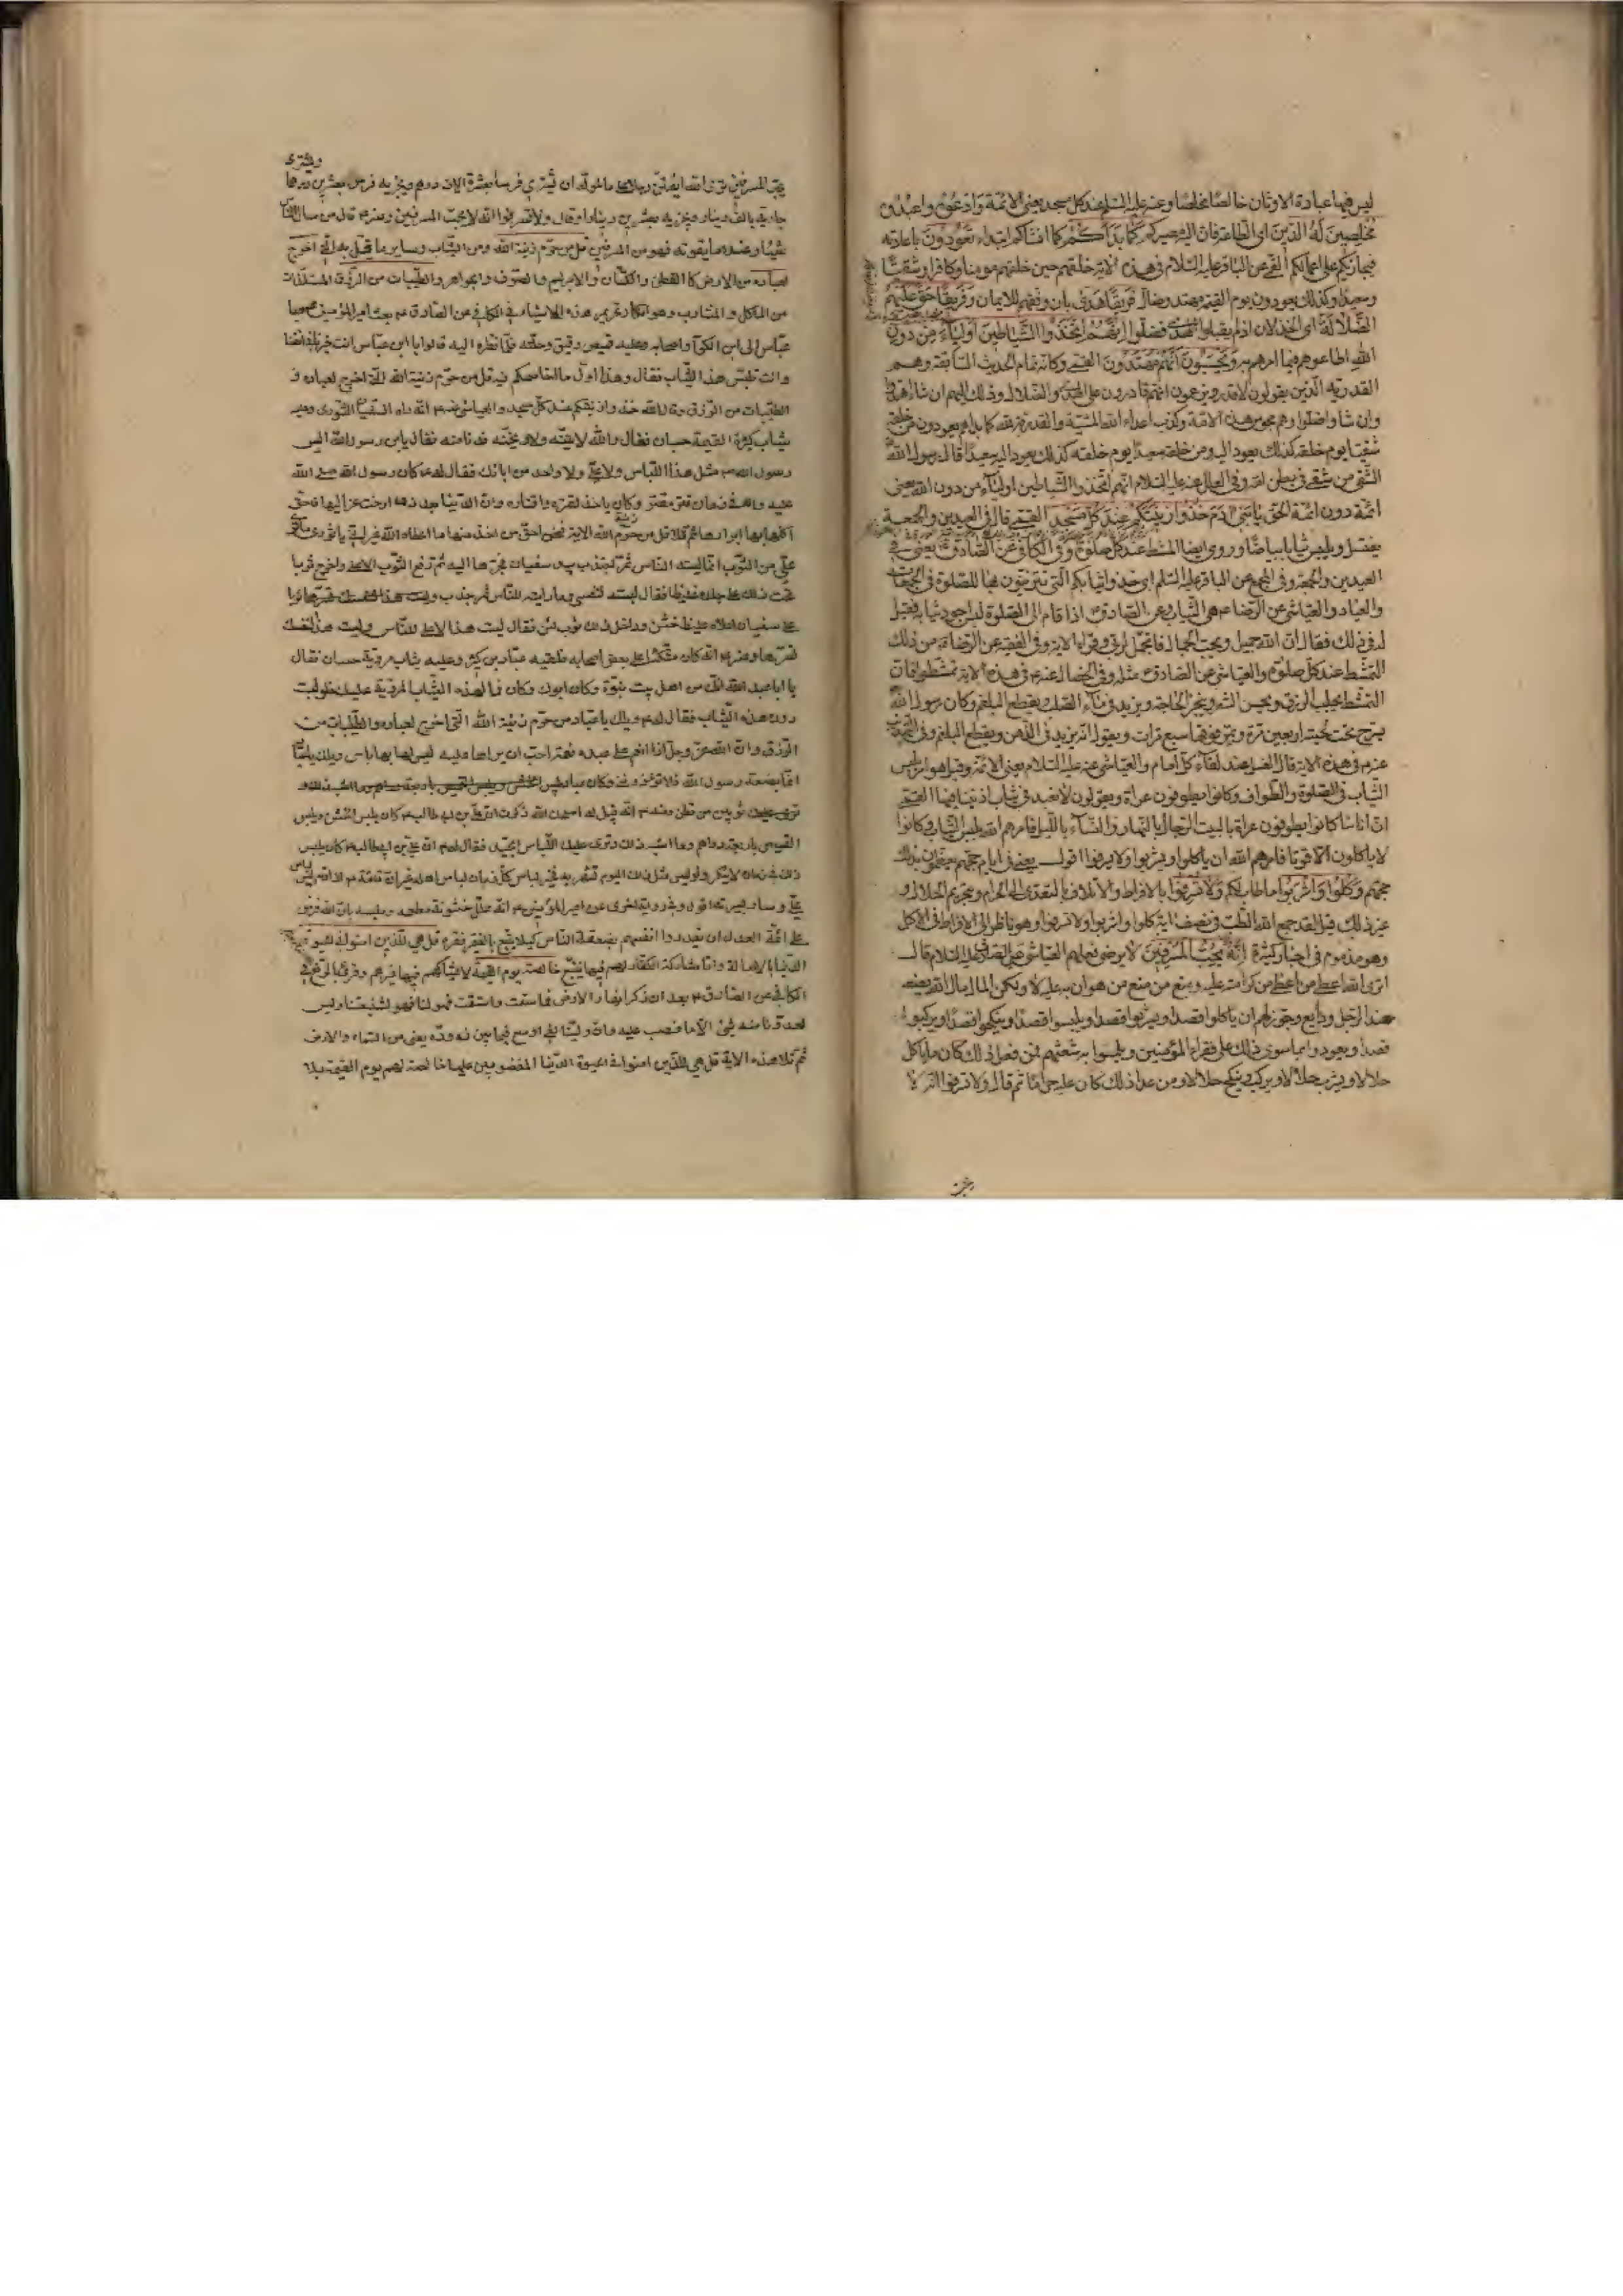 ليس فيها عبادة الاوثان خالصا مخلصا وعنه عليه السلم عند كل مسجد يعنى الائمة وَادْعُوهُ واعبدوه
مُخْلِصِينَ لَهُ الدِّينَ اى الطاعة فان اليه مصيركم كَمَا بَدَاَكُمْ كما انشاكم ابتداء تَعُودُونَ باعادته
فيجازيكم على اعمالكم القمى عن الباقر عليه السلام فى هذه الاية خلقهم حين خلقهم مومنا وكافرا وشقيا
وسعيدا وكذلك يعودون يوم القيمة مهتد وضال فَرِيقًا هَدَى بان وفقهم للايمان وَفَرِيقًا حَقَّ عَلَيْهِمُ
الضَّلَالَةُ اى الخذلان اذ لم يقبلوا الهدى فضلوا اِنَّهُمُ اتَّخَذُوا الشَّيَاطِينَ اَوْلِيَاءَ مِنْ دُونِ
اللهِ اطاعوهم فيما امرهم به وَيَحْسَبُونَ اَنَّهُمْ مُهْتَدُونَ القمى وكانه تمام الحديث السابقة وهم
القدرية الذين يقولون لا قدر ويزعمون انهم قادرون على الهدى والضلال وذلك اليهم ان شاؤا اهتدوا
وان شاؤا ضلوا وهم مجوس هذه الامة وكذب اعداء الله المشية والقدرة لله كما بداهم يعودون من خلقه
شقيا يوم خلقه كذلك يعود اليه ومن خلقه سعيدا يوم خلقه كذلك يعود اليه سعيدا قال رسول الله
الشقى من شقى فى بطن امه وفى العلل عنه عليه السلام انهم اتخذوا الشياطين اولياء من دون الله يعنى
ائمة دون ائمة الحق يَا بَنِى آدَمَ خُذُوا زِينَتَكُمْ عِنْدَ كُلِّ مَسْجِدٍ القمى قال فى العيدين والجمعة
يغتسل ويلبس ثيابا بياضا وروى ايضا المشط عند كل صلوة وفى الكافى عن الصادق يعنى فى
العيدين والجمعة وفى المجمع عن الباقر عليه السلم اى خذوا ثيابكم التى تتزينون بها للصلوة فى الجمعات
والاعياد والعياشى عن الرضا هى الثياب وعن الصادق اذا قام الى الصلوة لبس اجود ثيابه فقيل
له فى ذلك فقال ان الله جميل ويحب الجمال فاتجمل لربى وقراء الاية وفى الفقيه عن الرضا من ذلك
التمشط عند كل صلوة والعياشى عن الصادق مثله وفى الخصال عنه فى هذه الاية تمشطوا فان
التمشط يجلب الرزق ويحسن الشعر وينجز الحاجة ويزيد فى ماء الصلب ويقطع البلغم وكان رسول الله
يسرح تحت لحيته اربعين مرة ومن فوقها سبع مرات ويقول انه يزيد فى الذهن ويقطع البلغم وفى التهذيب
عنه فى هذه الاية قال الغسل عند لقاء كل امام والعياشى عنه عليه السلام يعنى الائمة وقيل هو امر بلبس
الثياب فى الصلوة والطواف وكانوا يطوفون عراة ويقولون لا نعبد فى ثياب اذنبنا فيها القمى
ان اناسا كانوا يطوفون عراة بالبيت الرجال بالنهار والنساء بالليل فامرهم الله بلبس الثياب وكانوا
لا ياكلون الا قوتا فامرهم الله ان ياكلوا ويشربوا ولا يسرفوا اقول يعنى فى ايام حجهم يعظمون بذلك
حجهم وَكُلُوا وَاشْرَبُوا ما طاب لكم وَلَا تُسْرِفُوا بالافراط والاتلاف بالتعدى الى الحرام وبتحريم الحلال و
غير ذلك قيل لقد جمع الله الطب فى نصف اية كلوا واشربوا ولا تسرفوا وهو ناظر الى الافراط فى الاكل
وهو مذموم فى اخبار كثيرة اِنَّهُ لا يُحِبُّ الْمُسْرِفِينَ لا يرضى فعلهم العياشى عن الصادق عليه السلام قال
اترى الله اعطى من اعطى من كرامته عليه ومنع من منع من هوان به عليه لا ولكن المال مال الله يضعه
عند الرجل ودايع وجوز لهم ان ياكلوا قصدا ويشربوا قصدا ويلبسوا قصدا وينكحوا قصدا ويركبوا
قصدا ويعودوا بما سوى ذلك على فقراء المؤمنين ويلموا به شعثهم فمن فعل ذلك كان ما ياكل
حلالا ويشرب حلالا ويركب وينكح حلالا ومن عدا ذلك كان عليه حراما ثم قال ولا تسرفوا انه لا
يحب المسرفين ترى الله ايتمن رجلا على مال خوله ان يشترى فرسا بعشرة الاف درهم ويجزيه فرس بعشرين درهما ويشترى
جارية بالف دينار ويجزيه بعشرين دينارا وقال ولا تسرفوا انه لا يحب المسرفين وعنه قال من سال الناس
شيئا وعنده ما يقوته فهو من المسرفين قُلْ مَنْ حَرَّمَ زينة الله ومن الثياب وساير ما يتجمل به الَّتِى اَخْرَجَ
لعباده من الارض كالقطن والكتان والابريسم والصوف والجواهر والطيبات من الرزق المستلذات
من الماكل والمشارب وهو انكار تحريم هذه الاشياء فى الكافى عن الصادق بعث امير المؤمنين عبدالله بن
عباس الى ابن الكوا واصحابه وعليه قميص رقيق وحلة فلما نظروا اليه قالوا يا ابن عباس انت خيرنا فى انفسنا
وانت تلبس هذا الثياب فقال وهذا اول ما اخاصمكم فيه قل من حرم زينة الله التى اخرج لعباده و
الطيبات من الرزق وقال الله خذوا زينتكم عند كل مسجد والعياشى عنه انه راه السفيان الثورى وعليه
ثياب كثيرة القيمة حسان فقال والله لاتينه ولاوبخنه فدنا منه فقال يابن رسول الله ما لبس
رسول الله مثل هذا اللباس ولا على ولا واحد من ابائك فقال له كان رسول الله صلى الله
عليه واله فى زمان قتر مقتر وكان ياخذ لقتره واقتاره وان الدنيا بعد ذلك ارخت عزاليها فاحق
اهلها بها ابرارها ثم تلا قل من حرم زينة الله الاية فنحن احق من اخذ منها ما اعطاه الله غير انى يا ثورى ما ترى
على من الثوب انما لبسته للناس ثم اجتذب يد سفيان فجرها اليه ثم رفع الثوب الاعلى واخرج ثوبا
تحت ذلك على جلده غليظا فقال لبسته لنفسى وما رايته للناس ثم جذب ثوبا
على سفيان اعلاه غليظ خشن وداخل ذلك ثوب لين فقال لبست هذا الاعلى للناس ولبست هذا لنفسك
تسرها وعنه انه كان متكئا على بعض اصحابه فلقيه عباد بن كثير وعليه ثياب مروية حسان فقال
يا ابا عبد الله انك من اهل بيت نبوة وكان ابوك وكان فما لهذه الثياب المروية عليك فلو لبست
دون هذه الثياب فقال له ويلك يا عباد من حرم زينة الله التى اخرج لعباده والطيبات من
الرزق وان الله عز وجل اذا انعم على عبده نعمة احب ان يراها عليه ليس بها باس ويلك يا عباد
انما بضعة رسول الله فلا تؤذونى وكان عباد يلبس
ثوبين من قطن وعنه انه قيل له اصلحك الله ذكرت ان على بن ابى طالب كان يلبس الخشن ويلبس
القميص باربعة دراهم وما اشبه ذلك ونرى عليك اللباس الجيد فقال له ان على بن ابى طالب كان يلبس
ذلك فى زمان لا ينكر ولو لبس مثل ذلك اليوم لشهر به فخير لباس كل زمان لباس اهله غير ان قائمنا اذا قام لبس لباس
على وسار بسيرته اقول وفى رواية اخرى عن امير المؤمنين انه علل خشونة مطعمه وملبسه بان الله فرض
على ائمة العدل ان يقدروا انفسهم بضعفة الناس كيلا يتبيغ بالفقير فقره قل هى للذين امنوا فى الحيوة
الدنيا بالاصالة واما مشاركة الكفار لهم فيها فتبع خالصة يوم القيمة لا يشاركهم فيها غيرهم وقرئ بالرفع فى
الكافى عن الصادق بعد ان ذكر انهار الارض فما سقت واستقت فهو لنا وما كان لنا فهو لشيعتنا وليس
لعدونا منه شئ الا ما غصب عليه وان ولينا لفى اوسع فيما بين ذه وذه يعنى من السماء والارض
ثم تلا هذه الاية قل هى للذين امنوا فى الحيوة الدنيا المغصوبين عليها خالصة لهم يوم القيمة بلا